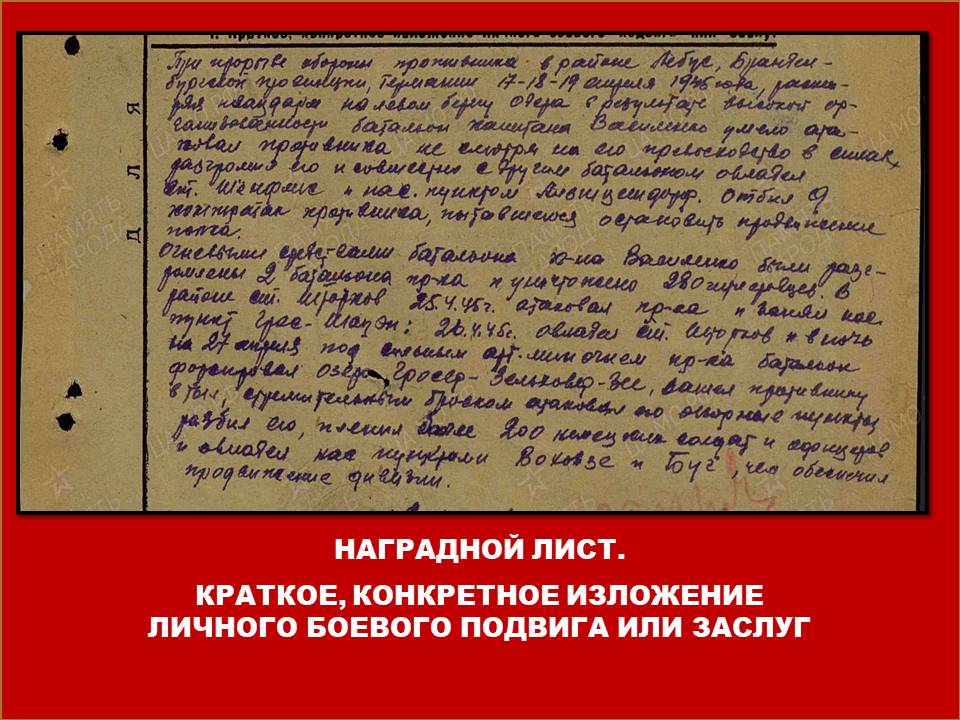 1. Краткое, конкретное изложение личного боевого подвига или заслуг.
При прорыве обороны противника в районе Лебус, Бранден-
бургской провинции, Германии 17-18-19 апреля 1945 года, расши-
ряя плацдарм на левом берегу Одера в результате высокой ор-
ганизованности батальон капитана Василенко умело ата-
ковал противника не смотря на его превосходство в силах,
разгромил его и совместно с другим батальоном овладел
ст. и нас. пунктом Отбил 9
контратак противника, пытавшегося остановить продвижение
полка.
Огневыми средствами батальона к-на Василенко были разг-
ромлены 2 батальона пр-ка и уничтожено 280 гитлеровцев. В
районе ст. Шторков 25.4.45г. атаковал пр-ка и занял нас.
пункт 26.4.45г. овладел ст. Шторков и в ночь
на 27 апреля под сильным арт. мин огнем пр-ка батальон
форсировал озеро Гросер- зашел противнику
в тыл, стремительным броском атаковал его опорные пункты
разбил его, пленил более 200 немецких солдат и офицеров
и овладел нас пунктами и Буг, чем обеспечил
продвижение дивизии.
Д Л Я
НАГРАДНОЙ ЛИСТ.
КРАТКОЕ, КОНКРЕТНОЕ ИЗЛОЖЕНИЕ
ЛИЧНОГО БОЕВОГО ПОДВИГА ИЛИ ЗАСЛУГ